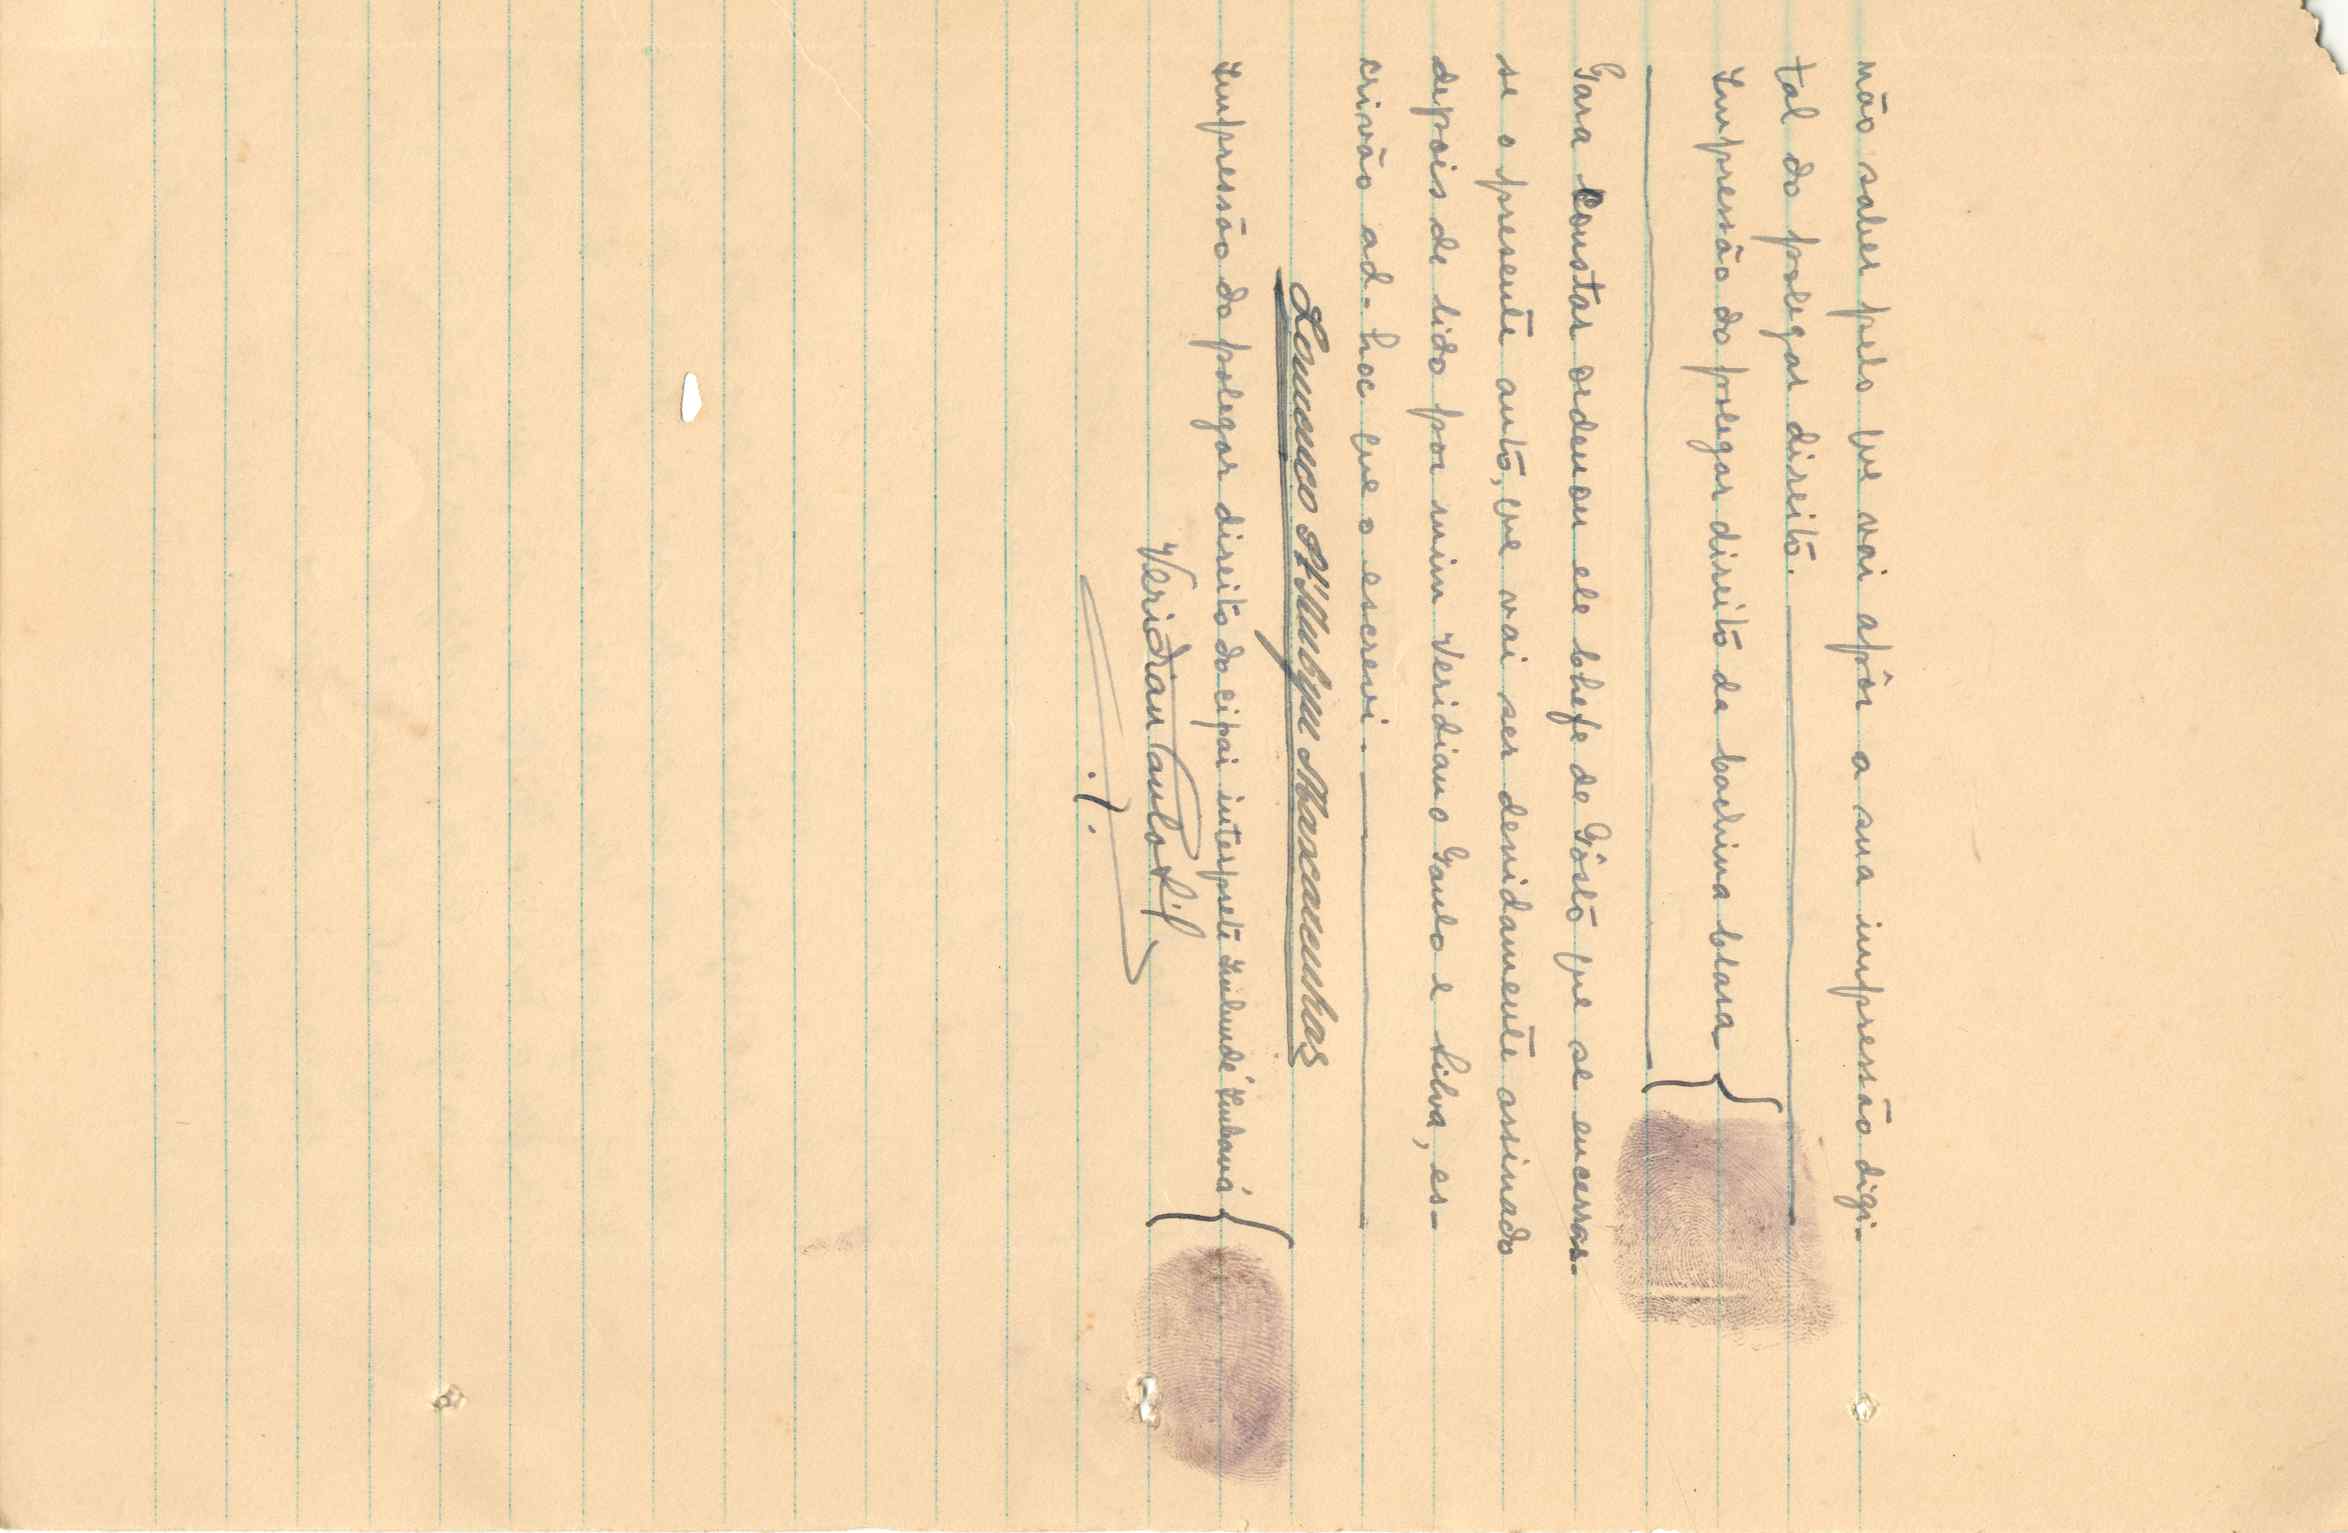 não saber pelo que vai apôr a sua impressão digi-
tal do polegar direito.
Impressão do polegar direito da
Para constar ordenou ele Chefe do Pôsto que se encerras-
se o presente auto, que vai ser devidamente assinado
depois de lido por mim Veridiano Paulo e Silva, es-
crivão ad-hoc que o escrevi.
Lourenço Mascarenhas
Impressão do polegar direito do cipai interprete